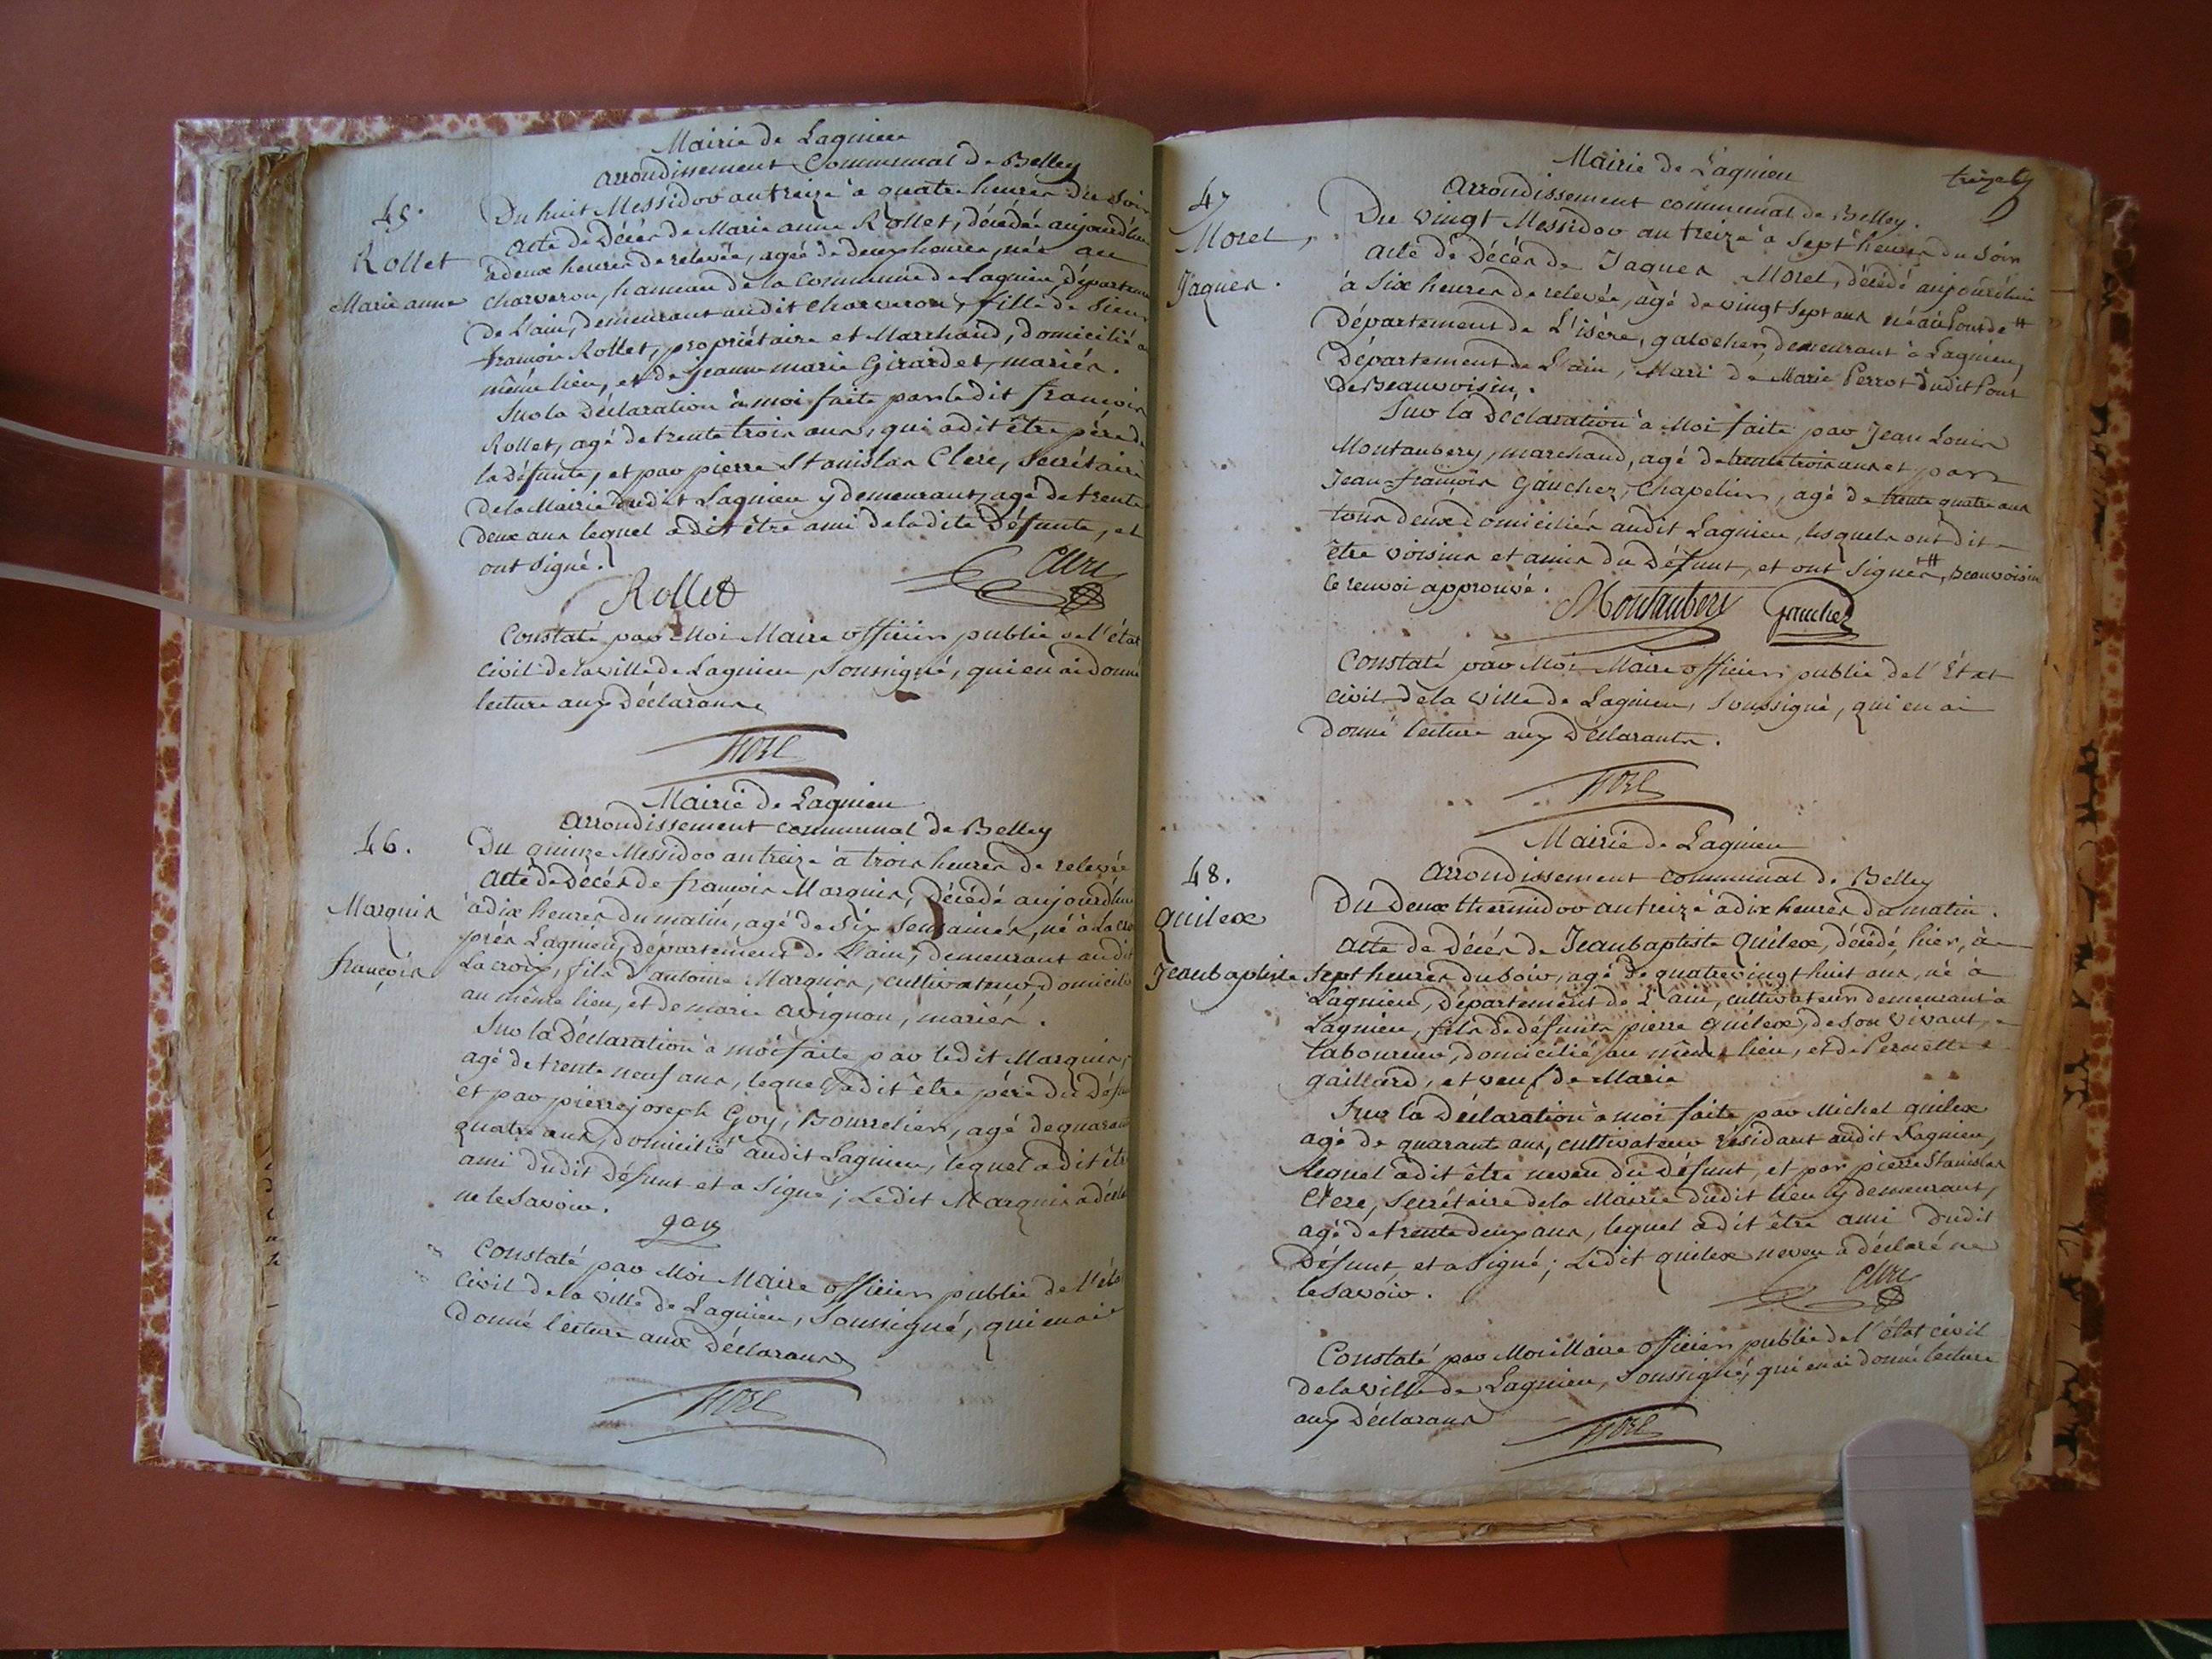 Mairie de Lagnieu
arrondissement Communal de Belley
45.
Rollet
Marie anne
Du huit Messidor an treize à quatre heures du Soir
acte de Décès de Marie anne Rollet, décédée aujourd'hui
à deux heures de relevée, agée de deux heures, née au
charveron, hameau de la commune de Lagnieu, Départem
De L'ain, demeurant audit charveron, fille de Sieur
françois Rollet, propriétaire et Marchand, domicilié au
même lieu, et de jeanne marie Girardet, mariés.
Sur la Déclaration à moi faite par ledit françois
Rollet, agé de trente trois ans, qui a dit être père de
la défunte, et par pierre Stanislas Clerc, Secrétaire
de la Mairie dudit Lagnieu y demeurant, agé de trente
deux ans lequel a dit être ami de ladite Défunte, et
ont signé.
Rollet
Clerc
Constaté par Moi Maire officier public de l'état
civil de la ville de Lagnieu, Soussigné, qui en ai donné
lecture aux Déclarans
Mairie de Lagnieu
arrondissement communal de Belley
46.
Marquis
françois
Du quinze Messidor an treize à trois heures de relevée
acte de Décès de françois Marquis, Décédé aujourd'hui
à dix heures du matin, agé de Six Semaines, né à La cro
près Lagnieu, département de L'ain, demeurant audit
Lacroix, fils d'antoine Marquis, cultivateur, domicilié
au même lieu, et de marie avignon, mariés.
Sur la Déclaration à moi faite par ledit Marquis,
agé de trente neuf ans, lequel a dit être père du Défu
et par pierre joseph Goy, Bourrelier, agé de quarante
quatre ans, domicilié audit Lagnieu, lequel a dit être
ami dudit Défunt et a Signé; Ledit Marquis a décla
ne le Savoir.
goy
Constaté par Moi Maire officier public de l'éta
civil de la ville de Lagnieu, Soussigné, qui en ai
Donné lecture aux Déclarans
Mairie de Lagnieu
arrondissement communal de Belley.
47
Morel,
Jaques.
Du vingt Messidor an treize à Sept heures du Soir
acte de Décès de Jaques Morel, décédé aujourd'hui
à Six heures de relevée, agé de vingt Sept ans né au Pont de #
Département de L'isère, galocher, demeurant à Lagnieu,
Département de L'ain, Mari de Marie Perrot dudit Pont
de Beauvoisin.
Sur la Déclaration à Moi faite par Jean Louis
Montaubery, marchand, agé de trente trois ans et par
Jean-françois Gauchez, Chapelier, agé de trente quatre ans
tous deux domiciliés audit Lagnieu, lesquels ont dit
être voisins et amis du Défunt, et ont Signés, # Beauvoisin
le renvoi approuvé.
Montaubery
Gauchez
Constaté par Moi Maire officier public de l'État
civil de la ville de Lagnieu, Soussigné, qui en ai
Donné lecture aux Déclarants.
Mairie de Lagnieu
arrondissement communal de Belley
48.
quilex
Jean baptiste
Du Deux thermidor an treize à dix heures du matin.
acte de Décès de Jean baptiste quilex, décédé, hier, à
Sept heures du Soir, agé de quatre vingt huit ans, né à
Lagnieu, Département de L'ain, cultivateur demeurant à
Lagnieu, fils de défunts pierre quilex, de son vivant,
laboureur, domicilié au même lieu, et de Pernette
gaillard, et veuf de Marie
Sur la Déclaration à moi faite par Michel quilex
agé de quarante ans, cultivateur résidant audit Lagnieu,
lequel a dit être neveu du Défunt, et par pierre Stanislas
Clerc, Secrétaire de la Mairie dudit lieu y demeurant,
agé de trente deux ans, lequel a dit être ami dudit
Défunt et a Signé; Ledit quilex neveu a déclaré ne
le Savoir.
Clerc
Constaté par Moi Maire officier public de l'état civil
de la ville de Lagnieu, Soussigné, qui en ai donné lecture
aux Déclarans